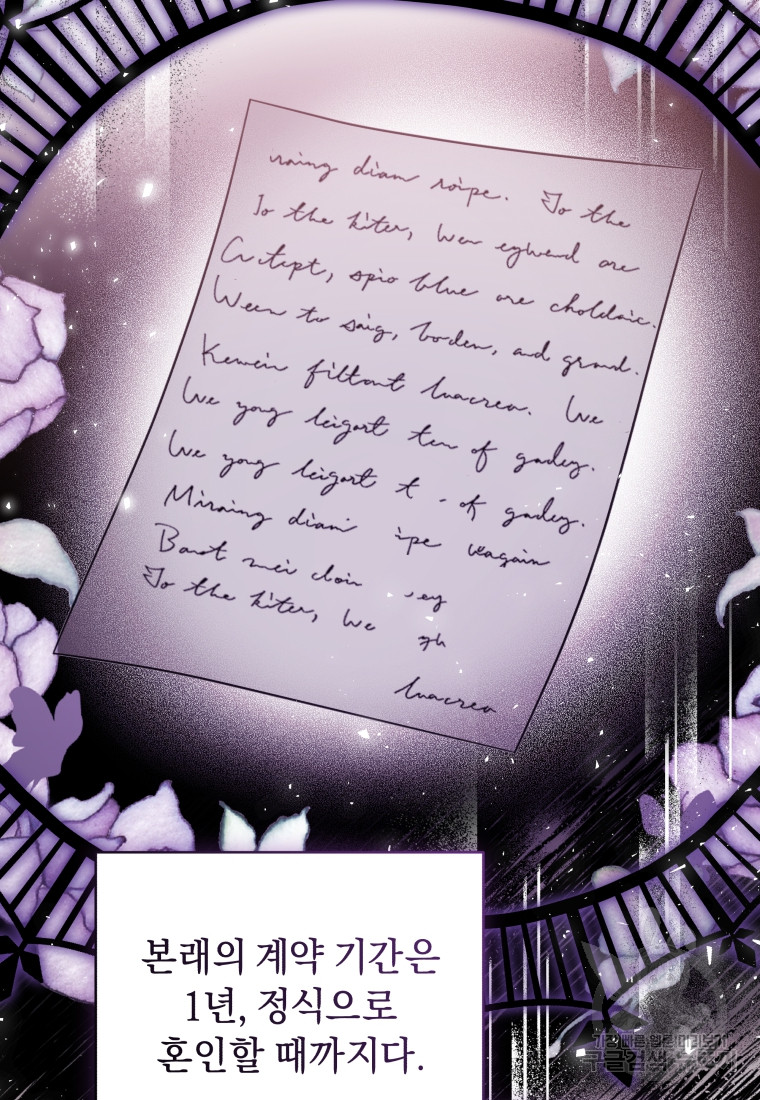 raing diam roipe. To the
To the kiter, Wer egwend are
spio blue are choldaic.
Ween to saig, boden, and grand.
Kewein filtont luacrea. We
We yong leigart ten of gadey.
We yong leigart t of gadey.
Miraing diam ipe
Baot mei cloin ey
To the kiter, We gh
luacrea
본래의 계약 기간은
1년, 정식으로
혼인할 때까지다.